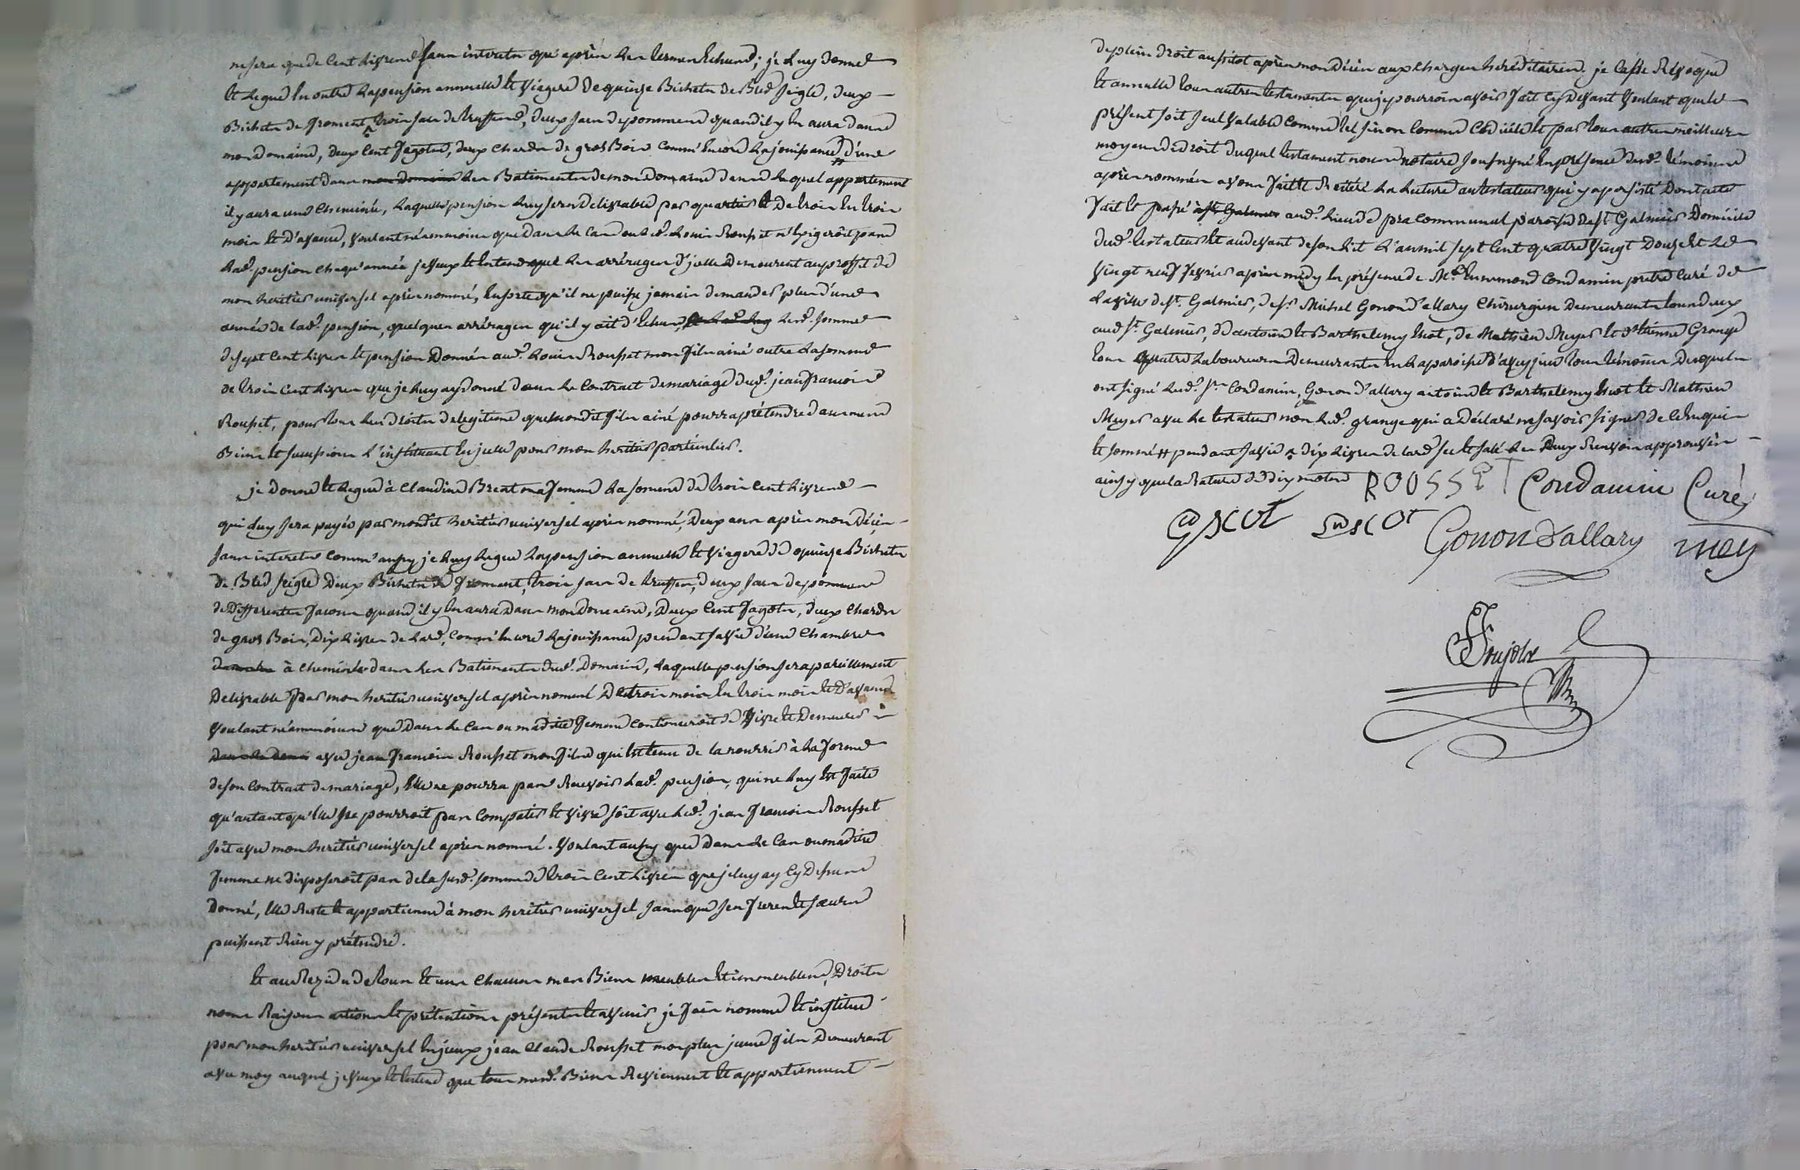 ne sera que de cent livres sans interets qu'après les termes echus; je luy donne
et legue en outre la pension annuelle et viagere de quinze Bichets de Bled seigle, deux
Bichets de froment, trois sacs de truffes, deux sacs de pommes quand il y en aura dans
mon domaine, deux cent fagots, deux chards de gros Bois comm'encore la jouissance d'une
appartement dans les Batiments de mon domaine dans lequel appartement
il y aura une cheminée, laquelle pension luy sera delivrable par quartier et de trois en trois
mois et d'avance, voulant néammoins que dans le cas ou led. Louis Rousset n'exigeroit pas
lad. pension chaqu'année je veux et entend que les arrérages d'icelle demeurent au proffit de
mon heritier universel après nommé, ensorte qu'il ne puisse jamais demander plus d'une
année de lad. pension, quelques arrérages qu'il y ait d'echus, led. somme
de sept cent livres et pension donnée aud. Louis Rousset mon fils ainé outre la somme
de trois cent livres que je luy ay donné dans le contract de mariage dud. jean françois
Rousset, pour tous les droits de legitime que mondit fils ainé pourra prétendre dans mes
Biens et succession l'instituant en icelle pour mon heritier particulier.
je donne et legue à Claudine Breat ma femme la somme de trois cent livres
qui luy sera payée par mondit heritier universel après nommé, deux ans après mon décès
sans interets comm'aussy je luy legue la pension annuelle et viagere de quinze Bichets
de Bled seigle deux Bichets de froment, trois sacs de truffes, deux sacs de pommes
de differentes facons quand il y en aura dans mon domaine, deux cent fagots, deux chards
de gros Bois, dix livres de lard, comm'encore la jouissance pendant sa vie d'une chambre
à cheminée dans les Batiments dud. Domaine, laquelle pension sera pareillement
delivrable par mon heritier universel après nommé de trois mois en trois mois et d'avance
voulant néammoins que dans le cas ou madite femme continueroit de vivre et demeurer
avec jean françois Rousset mon fils qui est tenu de la nourrir à la forme
de son contract de mariage, elle ne pourra pas recevoir lad. pension, qui ne luy est faite
qu'autant qu'elle ne pourroit pas compatir et vivre soit avec led. jean françois Rousset
soit avec mon heritier universel après nommé. voulant aussy que dans le cas ou madite
femme ne disposeroit pas de la susd. somme de trois cent livres que je luy ay cy dessus
donné, elle reste et appartienne à mon heritier universel sans que ses freres et soeurs
puissent rien y prétendre.
et au Rezidu de tous et uns chacuns mes Biens meubles et immeubles, Droits
noms Raisons actions et prétentions présents et avenir je fais nomme et institue
pour mon heritier universel en iceux jean claude Rousset mon plus jeune fils demeurant
avec moy auquel je veux et entend que tous mesd. Biens Reviennent et appartiennent
de plein droit aussitot après mon décès aux charges héréditaires. je casse Révoque
et annulle tous autres testaments que je pourrois avoir fait cy devant voulant que le
présent soit seul valable comme tel sinon comme codicille et par tous autres meilleurs
moyens de droit duquel testament nous notaire soussigné en présence desd. témoins
après nommés avons fait et Réitéré la lecture au testateur qui y a persisté dont acte
fait et passé aud. lieu de pra communal paroisse de st. Galmier Domicile
dud. testateur et au devant de son lit l'an mil sept cent quatre vingt douze et le
vingt neuf fevrier après midy en présence de Mre. Ennemond Condamin pretre curé de
la ville de st. Galmier, de sr. Michel Gonon d'allary chirurgien demeurants tous deux
aud st. Galmier, d'antoine et Barthelemy escot, de Mathieu Meys et d'etienne Grange
tous quatre laboureurs demeurants en la paroisse d'aveyzieu tous témoins desquels
ont signé led. sr. Condamin, Gonon d'allary antoine et Barthelemy escot et Mathieu
Meys avec le testateur non led. grange qui a déclaré ne savoir signer de ce enquis
et sommé # pendant sa vie ^ dix livres de lard sec et salé les deux renvois approuvés
ainsy que la rature de dix mots
ROUSSET Condamin Curé
a scot Gonon d'allary mey